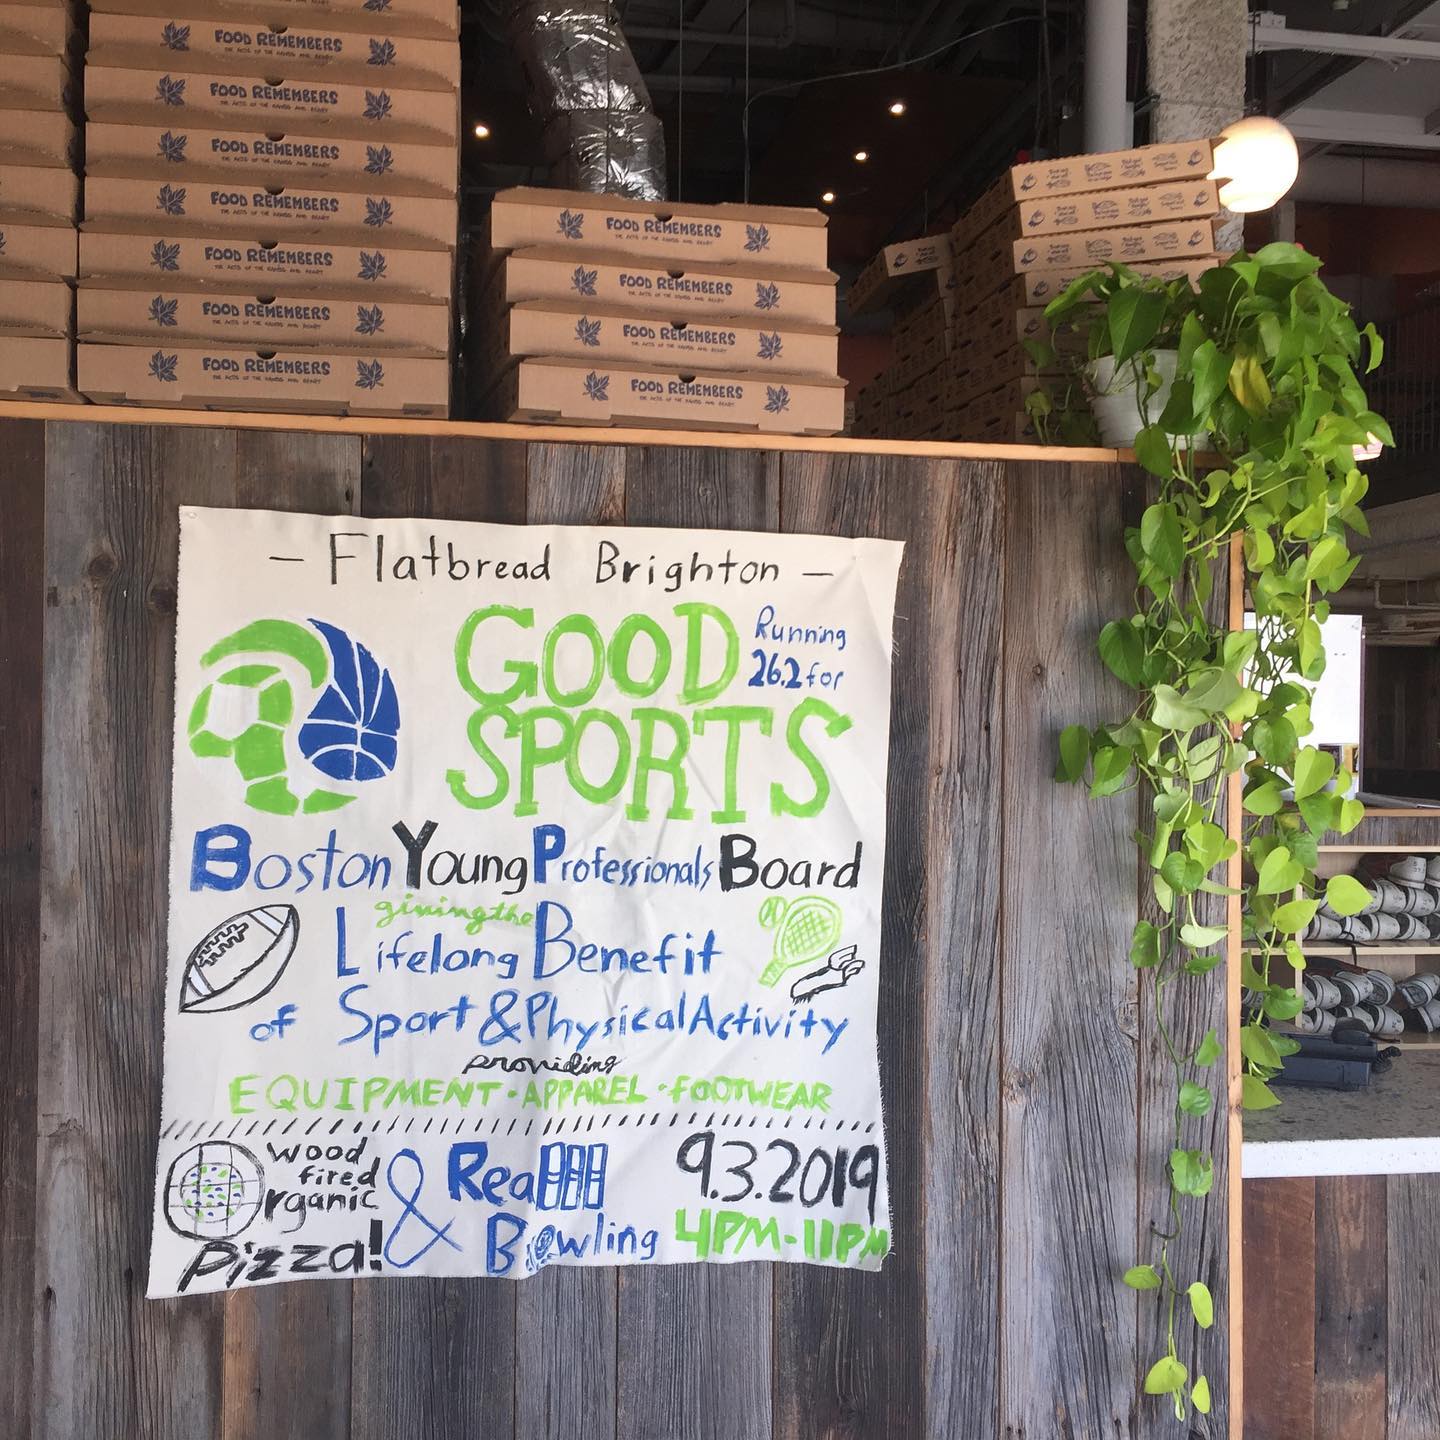 FOOD REMEMBERS
FOOD REMEMBERS
THE ACTS OF THE HANDS AND HEART
FOOD REMEMBERS
THE ACTS OF THE HANDS AND HEART
FOOD REMEMBERS
THE ACTS OF THE HANDS AND HEART
FOOD REMEMBERS
THE ACTS OF THE HANDS AND HEART
FOOD REMEMBERS
THE ACTS OF THE HANDS AND HEART
FOOD REMEMBERS
THE ACTS OF THE HANDS AND HEART
FOOD REMEMBERS
THE ACTS OF THE HANDS AND HEART
FOOD REMEMBERS
THE ACTS OF THE HANDS AND HEART
FOOD REMEMBERS
THE ACTS OF THE HANDS AND HEART
FOOD REMEMBERS
THE ACTS OF THE HANDS AND HEART
FOOD REMEMBERS
THE ACTS OF THE HANDS AND HEART
- Flatbread Brighton -
GOOD
SPORTS
Running
26.2 for
Boston Young Professionals Board
giving the
Lifelong Benefit
of Sport & Physical Activity
providing
EQUIPMENT · APPAREL · FOOTWEAR
wood
fired
Organic
Pizza!
&
Real
Bowling
9.3.2019
4PM-11PM